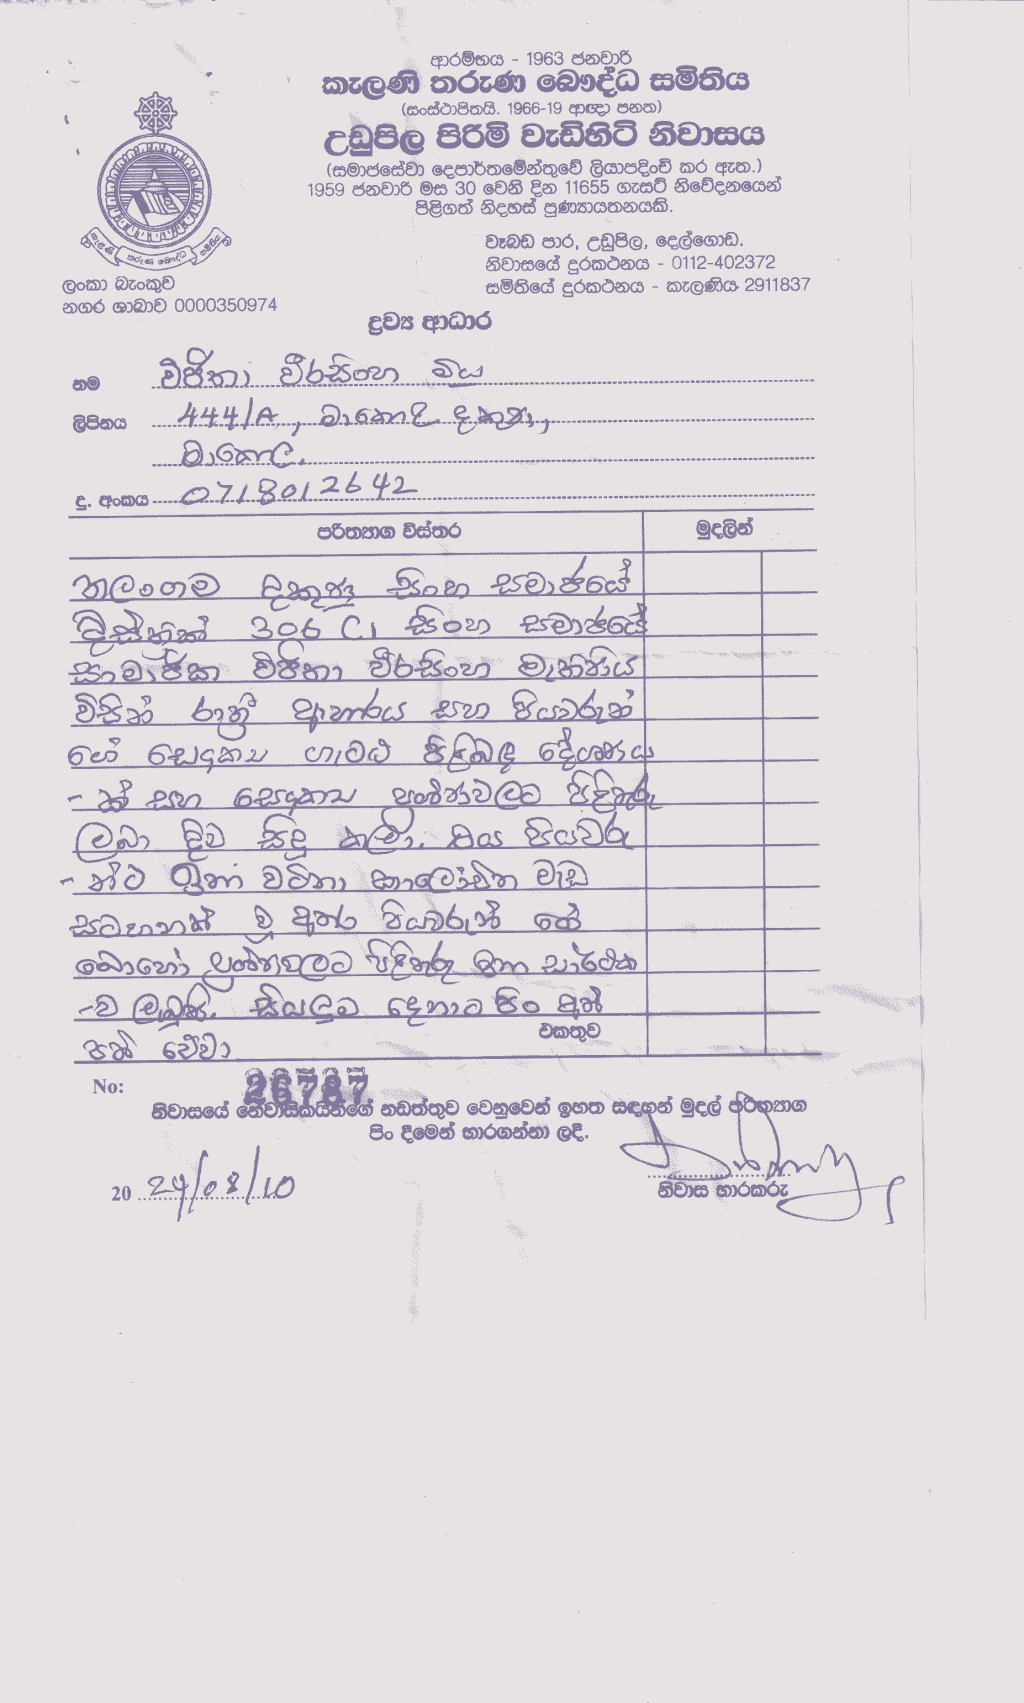 ආරම්භය - 1963 ජනවාරි
කැලණි තරුණ බෞද්ධ සමිතිය
(සංස්ථාපිතයි. 1966-19 ආඥා පනත)
උඩුපිල පිරිමි වැඩිහිටි නිවාසය
(සමාජසේවා දෙපාර්තමේන්තුවේ ලියාපදිංචි කර ඇත.)
1959 ජනවාරි මස 30 වෙනි දින 11655 ගැසට් නිවේදනයෙන්
පිළිගත් නිදහස් පුණ්‍යායතනයකි.
කැලණි තරුණ බෞද්ධ සමිතිය
වෑබඩ පාර, උඩුපිල, දෙල්ගොඩ.
නිවාසයේ දුරකථනය - 0112-402372
සමිතියේ දුරකථනය - කැලණිය 2911837
ලංකා බැංකුව
නගර ශාඛාව 0000350974
ද්‍රව්‍ය ආධාර
නම විජිතා වීරසිංහ මිය
ලිපිනය 444/A, මාකොල දකුණ,
මාකොල.
දු. අංකය 0718012642
පරිත්‍යාග විස්තර මුදලින්
තලංගම දකුණු සිංහ සමාජයේ
දිස්ත්‍රික් 306 C1 සිංහ සමාජයේ
සාමාජික විජිතා වීරසිංහ මැතිනිය
විසින් රාත්‍රී ආහාරය සහ පියවරුන්
ගේ සෞඛ්‍ය ගැටළු පිළිබඳ දේශණය
- ක් සහ සෞඛ්‍ය ප්‍රශ්ණවලට පිළිතුරු
ලබා දීම සිදු කළා. එය පියවරු
- න්ට ඉතා වටිනා කාලෝචිත වැඩ
සටහනක් වූ අතර පියවරුන් ගේ
බොහෝ ප්‍රශ්නවලට පිළිතුරු ඉතා සාර්ථක
-ව ලැබුණි. සියලුම දෙනාට පිං අත්
පත් වේවා
එකතුව
No: 26787
නිවාසයේ නේවාසිකයින්ගේ නඩත්තුව වෙනුවෙන් ඉහත සඳහන් මුදල් පරිත්‍යාග
පිං දීමෙන් භාරගන්නා ලදී.
20 24/08/10
නිවාස භාරකරු